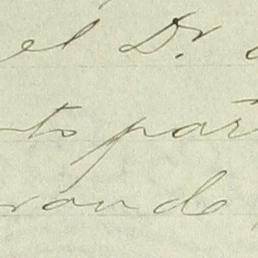 el Dr.
nto part
rande